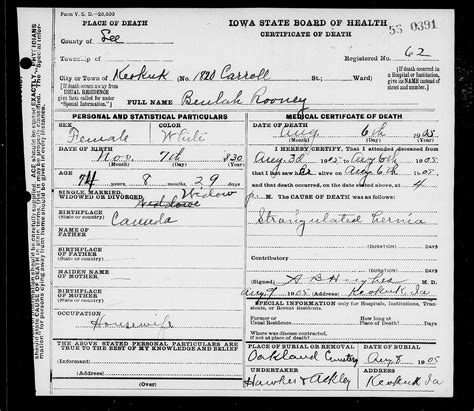 Form V. S. D.—20,000
PLACE OF DEATH
IOWA STATE BOARD OF HEALTH
CERTIFICATE OF DEATH
56 0391
County of Lee
Township of
Registered No. 62
City or Town of Keokuk (No. 1820 Carroll St.; Ward)
(If death occurs away from USUAL RESIDENCE give facts called for under "Special Information.")
(If death occurred in a Hospital or Institution, give its NAME instead of street and number.)
FULL NAME Beulah Rooney
PERSONAL AND STATISTICAL PARTICULARS
SEX Female
COLOR White
DATE OF BIRTH
Nov. 7th 830
AGE
74 8 months 29 days
SINGLE, MARRIED, WIDOWED OR DIVORCED Widow
BIRTHPLACE (State or country) Canada
NAME OF FATHER
BIRTHPLACE OF FATHER (State or country)
MAIDEN NAME OF MOTHER
BIRTHPLACE OF MOTHER (State or country)
OCCUPATION
Housewife
THE ABOVE STATED PERSONAL PARTICULARS ARE TRUE TO THE BEST OF MY KNOWLEDGE AND BELIEF
(Informant)
(Address)
MEDICAL CERTIFICATE OF DEATH
DATE OF DEATH
Aug 6th 1905
I HEREBY CERTIFY, That I attended deceased from
Aug 3d 1905 to Aug 6th 1905
that I last saw her alive on Aug 6th 1905
and that death occurred, on the date stated above, at 4
M. The CAUSE OF DEATH was as follows:
Strangulated hernia
(DURATION) Days
Contributory
(DURATION) Days
(Signed) A B Hughes M. D.
Aug 9 1905 (Address) Keokuk Ia
SPECIAL INFORMATION only for Hospitals, Institutions, Transients, or Recent Residents.
Former or Usual Residence
How long at Place of Death? Days
Where was disease contracted, if not at place of death?
PLACE OF BURIAL OR REMOVAL
DATE OF BURIAL
Oakland Cemetery Aug 8 1905
UNDERTAKER
ADDRESS
Hawkes & Ackley Keokuk Ia